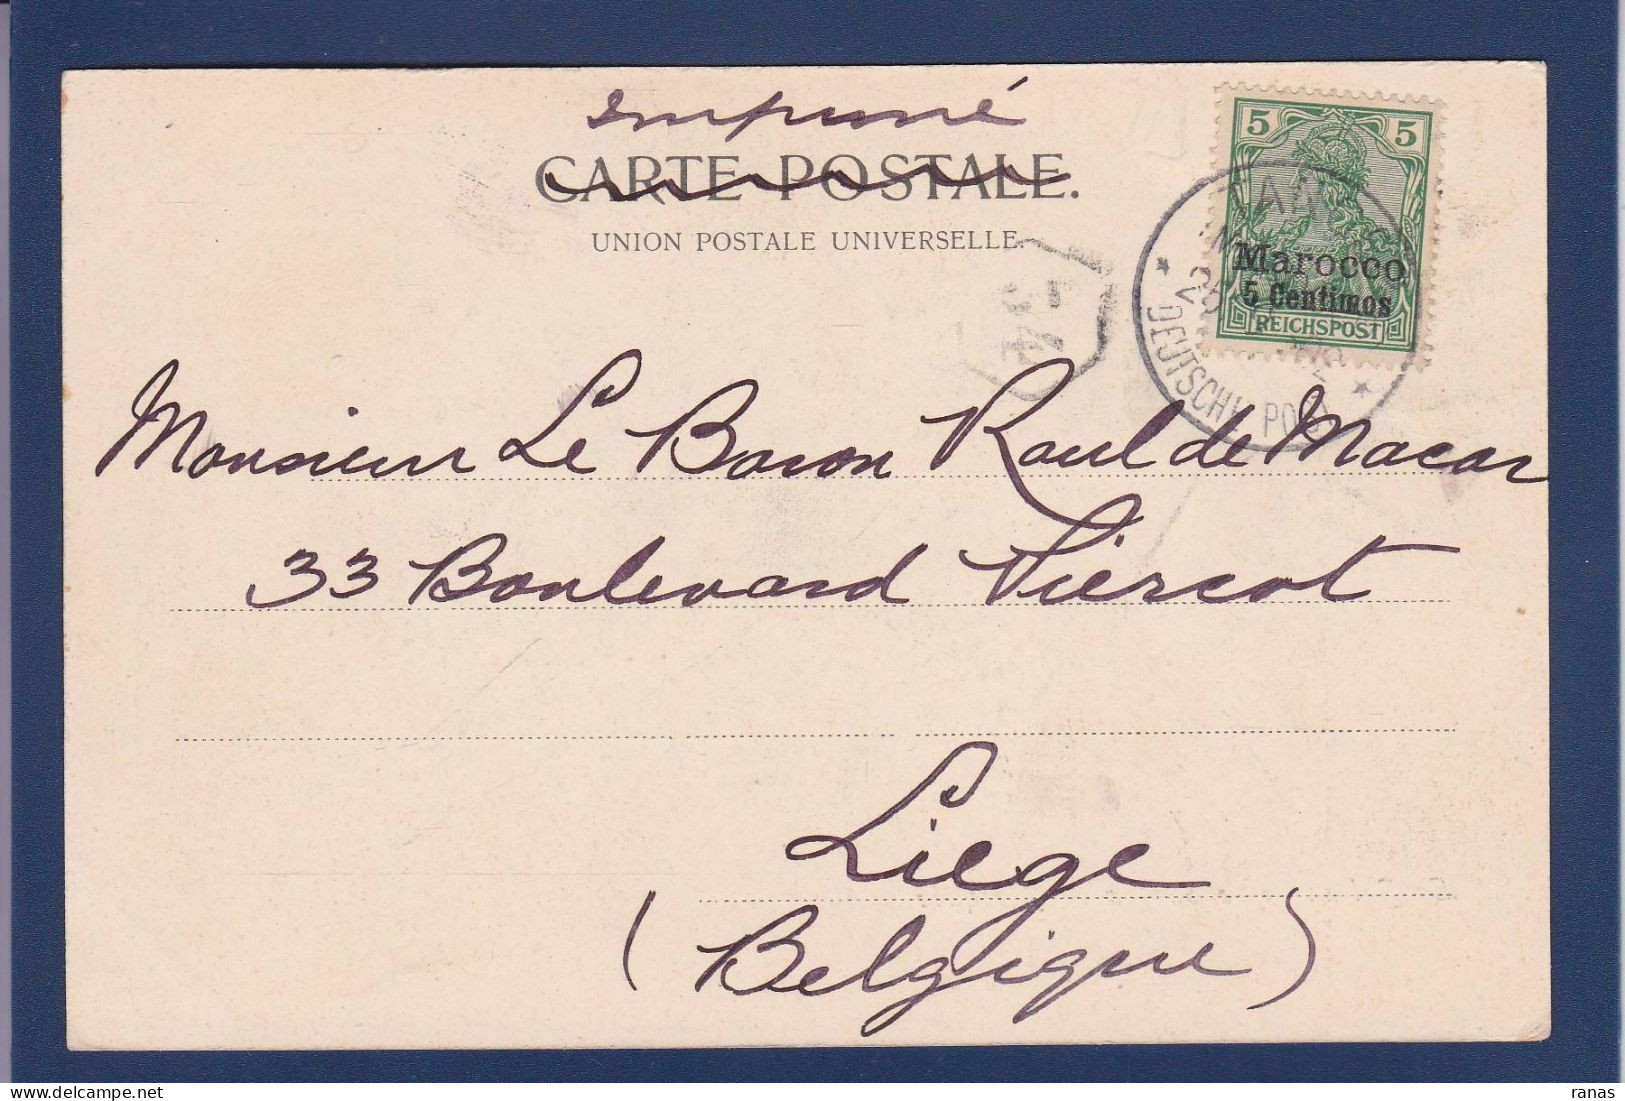 imprimé
CARTE POSTALE.
UNION POSTALE UNIVERSELLE.
5 5
Marocco
5 Centimos
REICHSPOST
DEUTSCHE POST
Monsieur Le Baron Raoul de Macar
33 Boulevard Piercot
Liege
(Belgique)
ranas